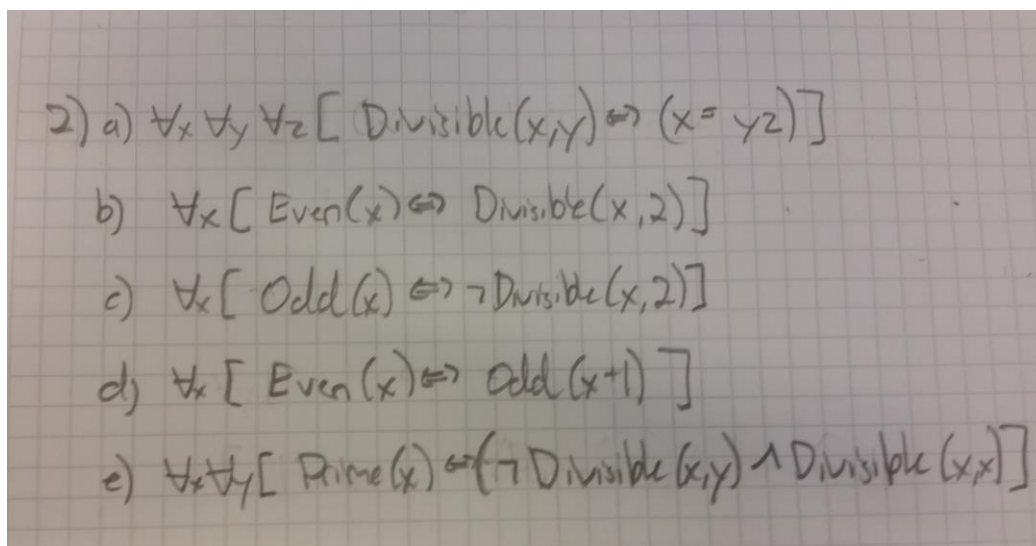 2) a) ∀x ∀y ∀z [ Divisible(x,y) ⇔ (x = yz) ]
b) ∀x [ Even(x) ⇔ Divisible(x,2) ]
c) ∀x [ Odd(x) ⇔ ¬Divisible(x,2) ]
d) ∀x [ Even(x) ⇔ Odd(x+1) ]
e) ∀x ∀y [ Prime(x) ⇔ (¬Divisible(x,y) ∧ Divisible(x,x) ]